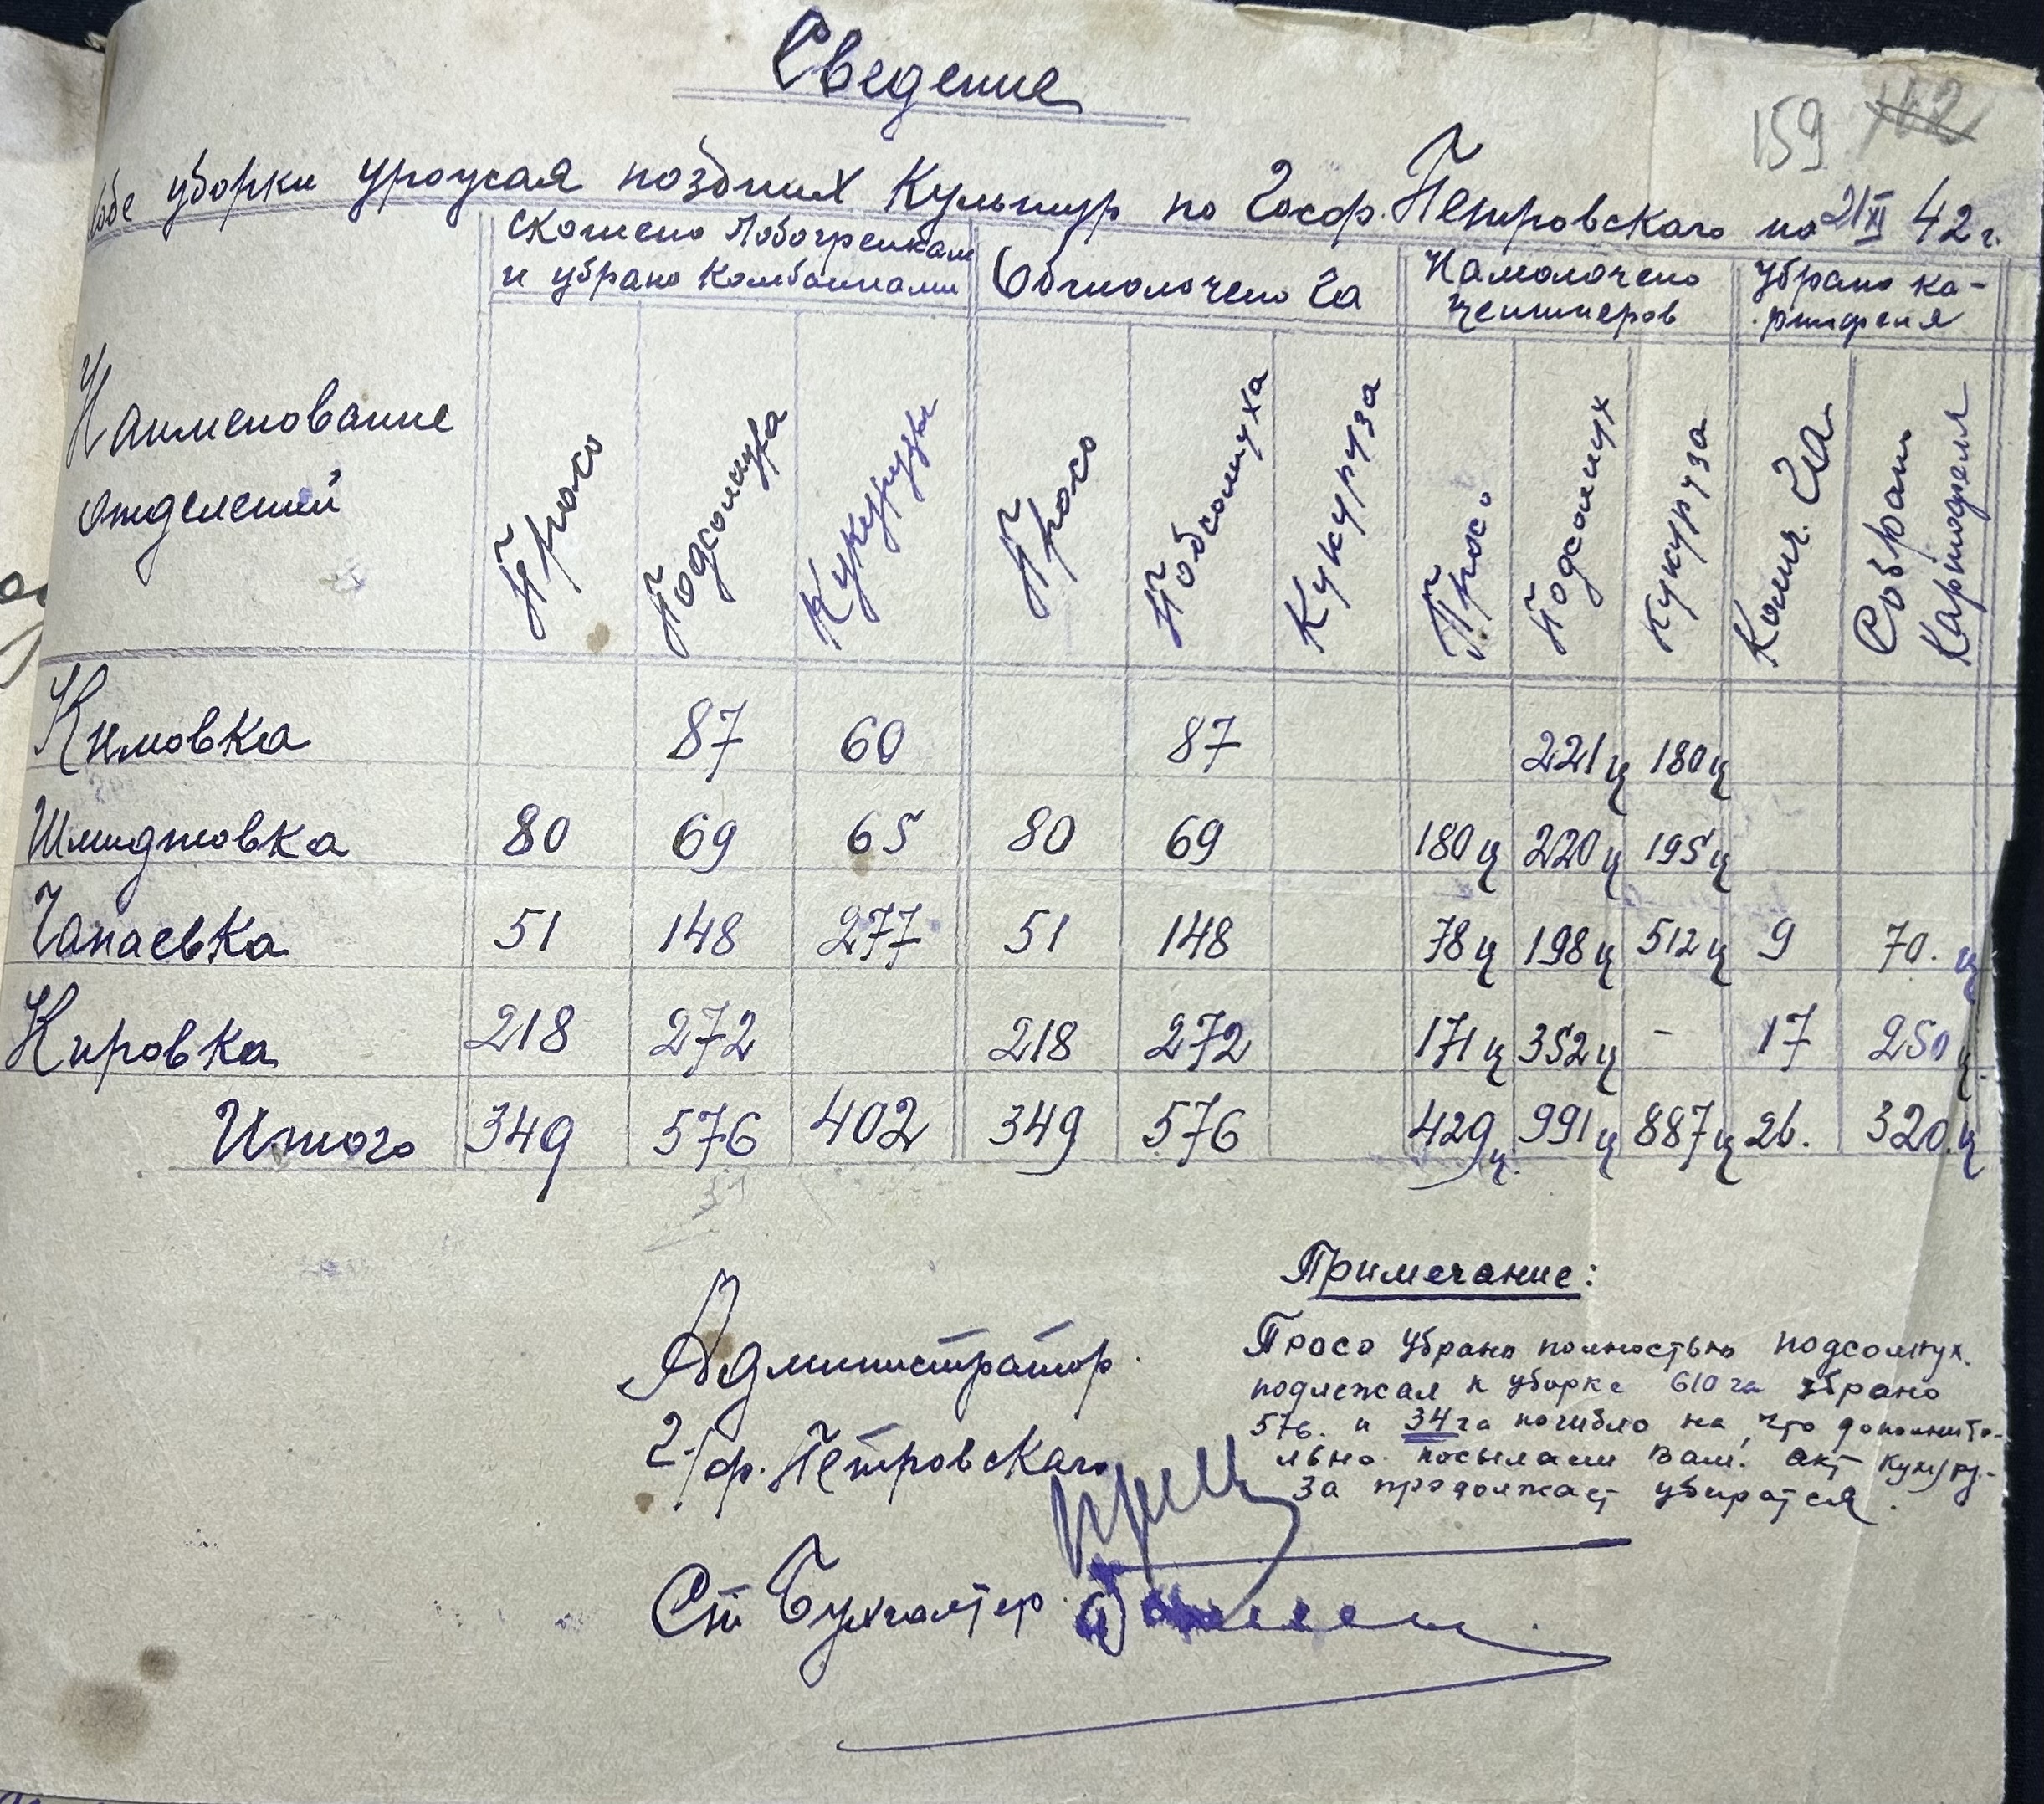 Сведение
159 162
уборки урожая поздних культур по Госф. Петровского на 21 XI 42 г.
Наименование отделений
скошено Лобогрейкам и убрано Комбайнами
Обмолочено Га
Намолочено центнеров
Убрано картофеля
Просо Подсолнуха Кукурузы Просо Подсолнуха Кукуруза Просо Подсолнух Кукуруза Колич. Га Собран Картофеля
Климовка 87 60 87 221 ц 180 ц
Шмидтовка 80 69 65 80 69 180 ц 220 ц 195 ц
Чапаевка 51 148 277 51 148 78 ц 198 ц 512 ц 9 70. ц
Кировка 218 272 218 272 171 ц 352 ц - 17 250 ц.
Итого 349 576 402 349 576 429 ц. 991 ц 887 ц 26. 320. ц
Примечание:
Просо убрано полностью подсолнух.
подлежал к уборке 610 га убрано
576. и 34 га погибло на, что дополните-
льно посылали Вам. акт Кукуру-
за продолжает убиратся.
Администратор.
Г/ф. Петровского
Ст Бухгалтер.